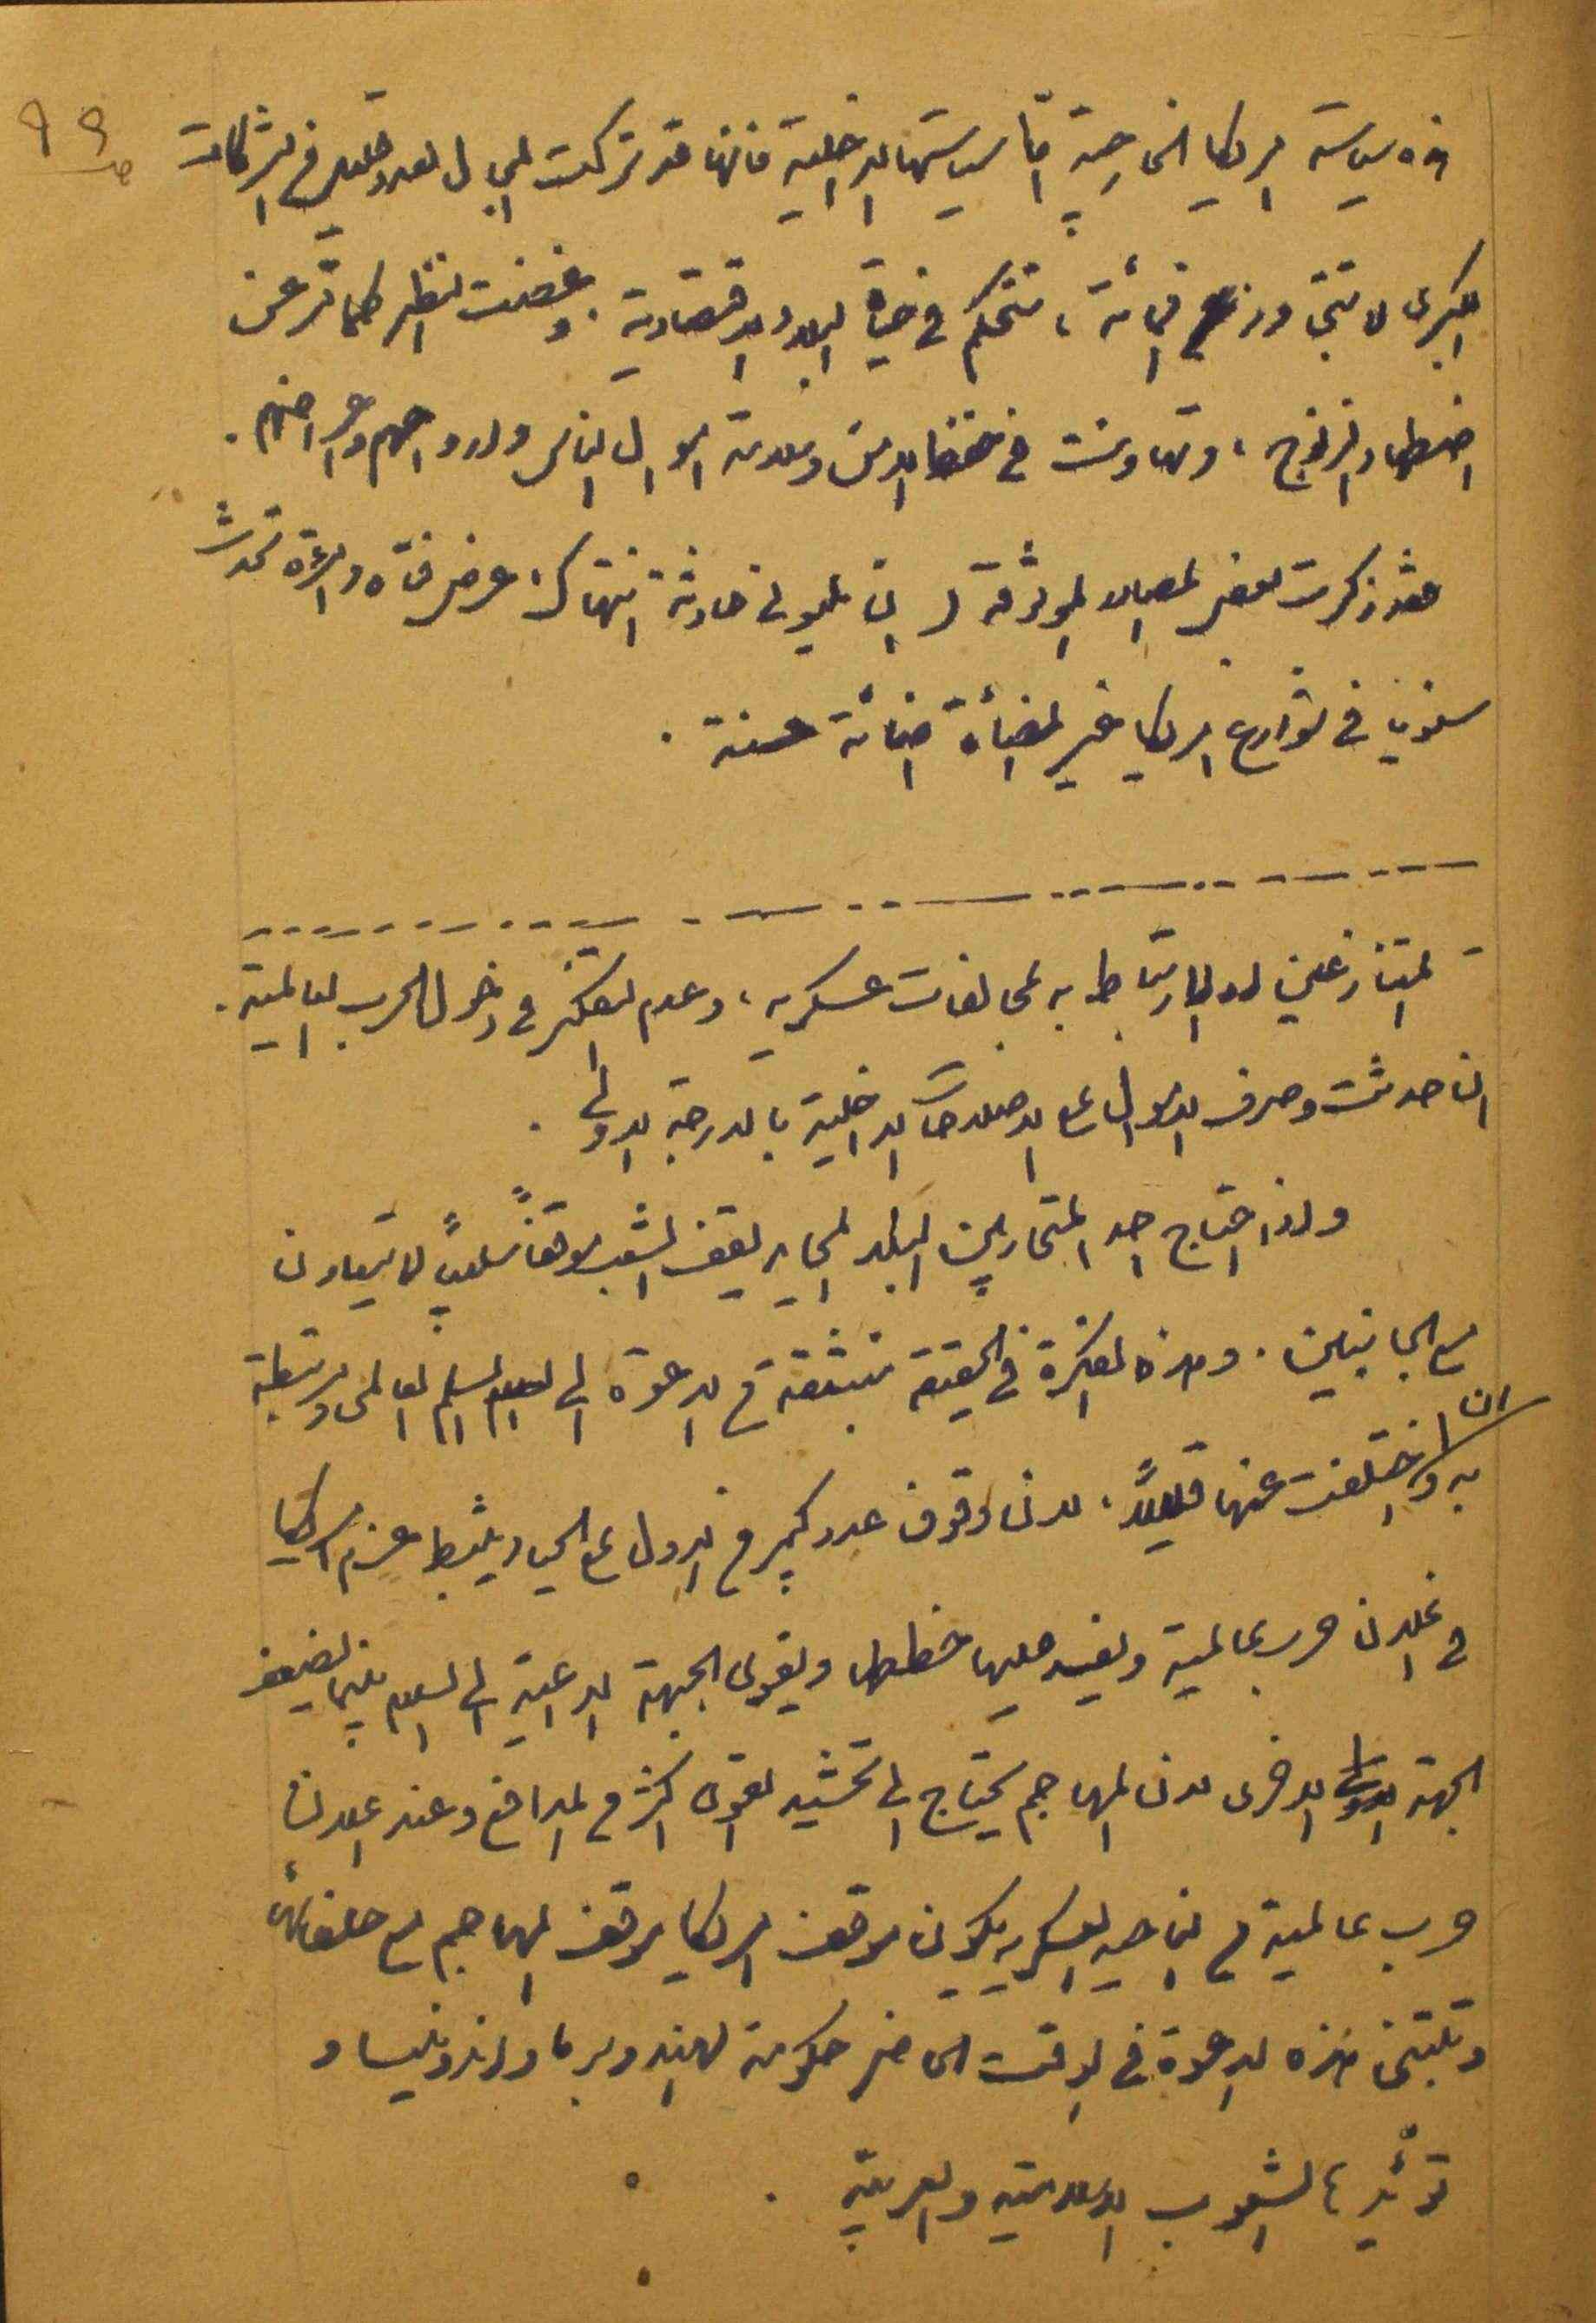 ص ٩٩
هذه سياسة امريكا الخارجية اما سياستها الداخلية فانها قد تركت المجال لعدد قليل من الشركات
الكبرى لا تتجاوز المائة، تتحكم في حياة البلاد الاقتصادية. وغضت النظر كما تر عن
اضطهاد الزنوج، وتهاونت في حفظ الامن وسلامة اموال الناس وارواحهم واعراضهم.
فقد ذكرت بعض المصادر الموثوقة ان مليوني حادثة انتهاك عرض فتاة وامرأة تحدث
سنويا في شوارع امريكا غير المضاءة اضائة حسنة.
المتنازعين او الارتباط به بمحالفات عسكرية، وعدم التفكير في دخول الحرب العالمية.
ان حدثت وصرف الاموال على الاصلاحات الداخلية بالدرجة الاولى.
واذا اجتاح احد المتحاربين البلد المحايد يقف الشعب موقفاً سلبياً لا يتعاون
مع الجانبين. وهذه الفكرة في الحقيقة منبثقة من الدعوة الى السلم العالمي ومرتبطة
به وان اختلفت عنها قليلاً، لان وقوف عدد كبير من الدول على الحياد يثبط عزم امريكا
في اعلان حرب عالمية ويفسد عليها خططها ويقوي الجبهة الداعية الى السلام بينما يضعف
الجبهة الاخرى لان المهاجم يحتاج الى تحشيد القوى اكثر من المدافع وعند اعلان
حرب عالمية من الناحية العسكرية يكون موقف امريكا موقف المهاجم مع حلفائها
وتتبنى هذه الدعوة في الوقت الحاضر حكومة الهند وبرما واندونيسيا و
تؤيدها الشعوب الاسلامية والعربية.